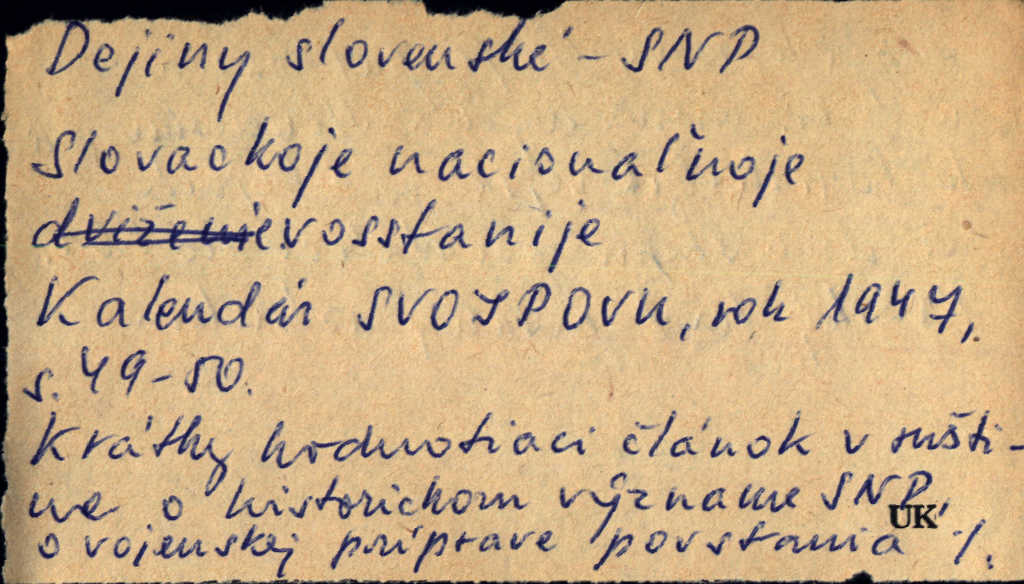 Dejiny slovenské - SNP
Slovackoje nacionaľnoje
dviženie vosstanije
Kalendár SVOJPOVU, rok 1947,
s. 49-50.
Krátky hodnotiaci článok v rušti-
ne o historickom význame SNP,
UK
o vojenskej príprave povstania /.